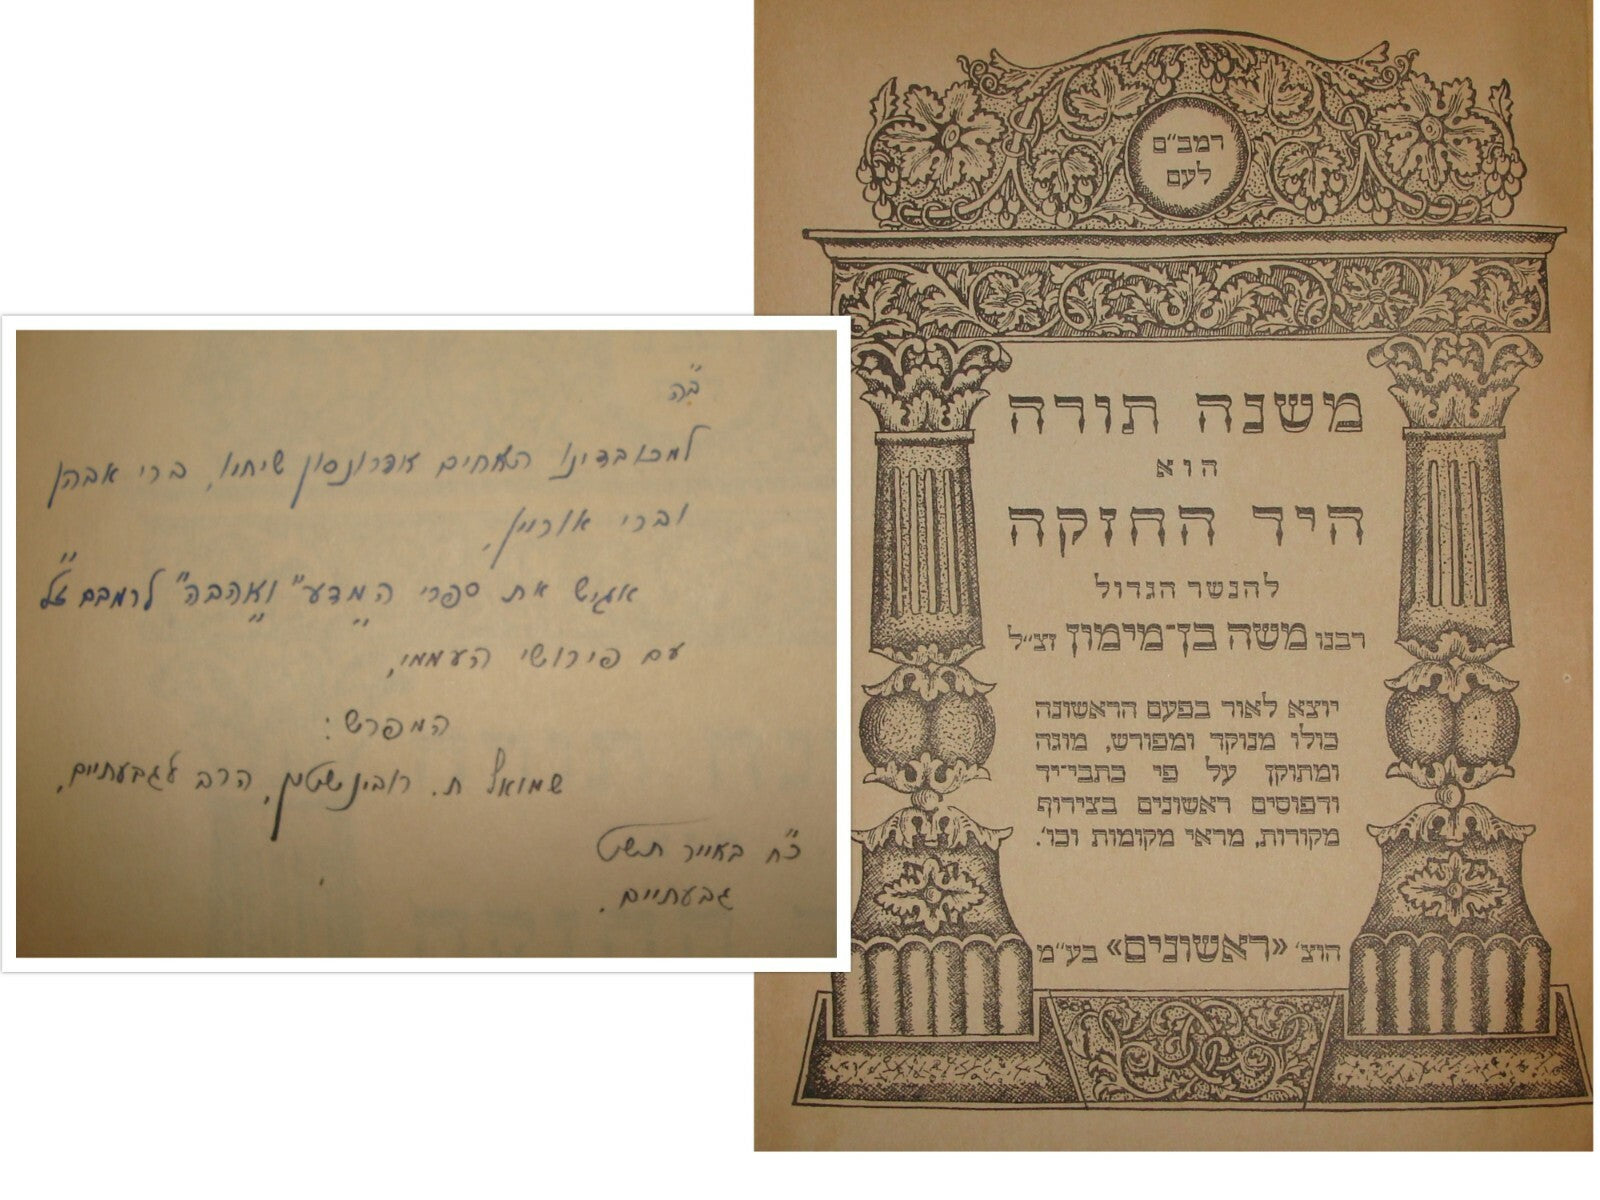 רמב״ם
לעם
משנה תורה
הוא
היד החזקה
להנשר הגדול
רבנו משה בן־מימון זצ״ל
יוצא לאור בפעם הראשונה
כולו מנוקד ומפורש, מוגה
ומתוקן על פי כתבי־יד
ודפוסים ראשונים בצירוף
מקורות, מראי מקומות וכו׳.
הוצ׳ «ראשונים» בע״מ
ב״ה
למכובדינו האחים אהרונסון שיחיו, ברי אבהן
וברי אוריין,
אגיש את ספרי ה״מדע״ ו״אהבה״ לרמבם ז״ל
עם פירושי העממי,
המפרש:
שמואל ת. רובינשטין, הרב לגבעתיים,
כ״ח באייר תשט
גבעתיים.